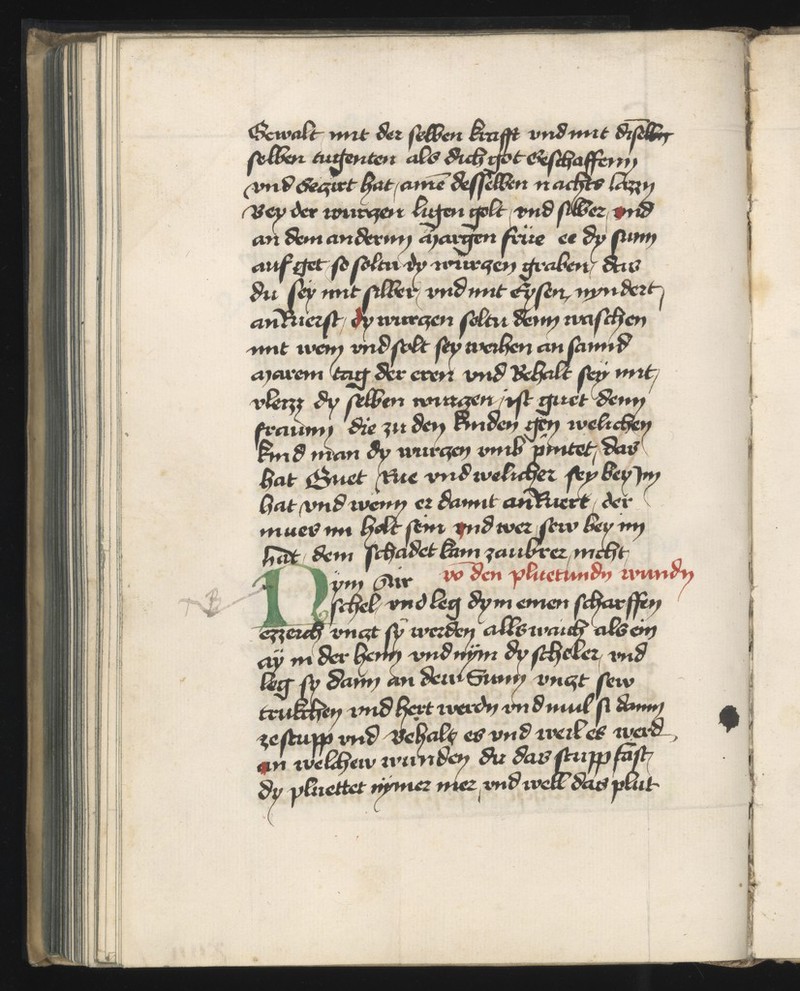 Gewalt mit der selben krafft vnd mit diselben
selben tugenten als dich got Geschaffenn
vnd Geziert hat ame desselben nachts lazzn
Bey der wurczen ligen golt vnd silber vnd
an dem andernn Margen früe ee dy sunn
auf get so soltu dy wurczen graben das
du sey mit silber vnd mit Eysen nyndert
anRuerst dy wurczen soltu denn waschen
mit wein vnd solt sey weihen an sannd
Marein tag der eren vnd Behalt sey mit
vleizz dy selben wurczen ist guet denn
frawnn die zu den kinden gen welichen
kind man dy wurczen vmb pintet das
hat Guet Rue vnd welicher sey bey im
hat vnd wenn er damit anRuert der
mues im holt sein vnd wer sew bey im
hat dem schadet kain zaubrer nicht
vo den pluetundn wundn
Nym Air
schel vnd leg dy in einen scharffen
ezzeich vnczt sy werden alls waich als ein
ay in der henn vnd nym dy scheler vnd
leg sy dann an dew Sunn vnczt sew
trukchen vnd hert werdn vnd mul si dann
ze stupp vnd Behalt es vnd weil es werd
an welchew wunden du das stupp fast
dy pluettet nymer mer vnd well das plut